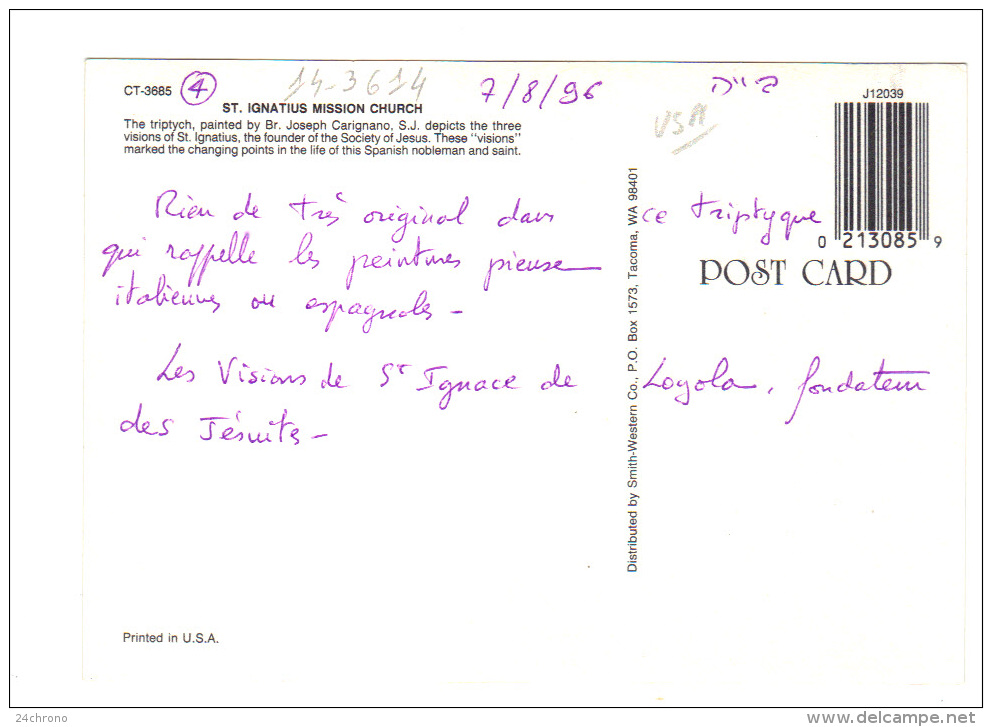 CT-3685 4 14-3614 7/8/96
ST. IGNATIUS MISSION CHURCH
The triptych, painted by Br. Joseph Carignano, S.J. depicts the three
visions of St. Ignatius, the founder of the Society of Jesus. These "visions"
marked the changing points in the life of this Spanish nobleman and saint.
USA
J12039
0 213085 9
POST CARD
Rien de très original dans ce triptyque
qui rappelle les peintures pieuse
italiennes ou espagnoles -
Les Visions de St Ignace de Loyola, fondateur
des Jésuites -
Distributed by Smith-Western Co., P.O. Box 1573, Tacoma, WA 98401
Printed in U.S.A.
24chrono
www.delcampe.net